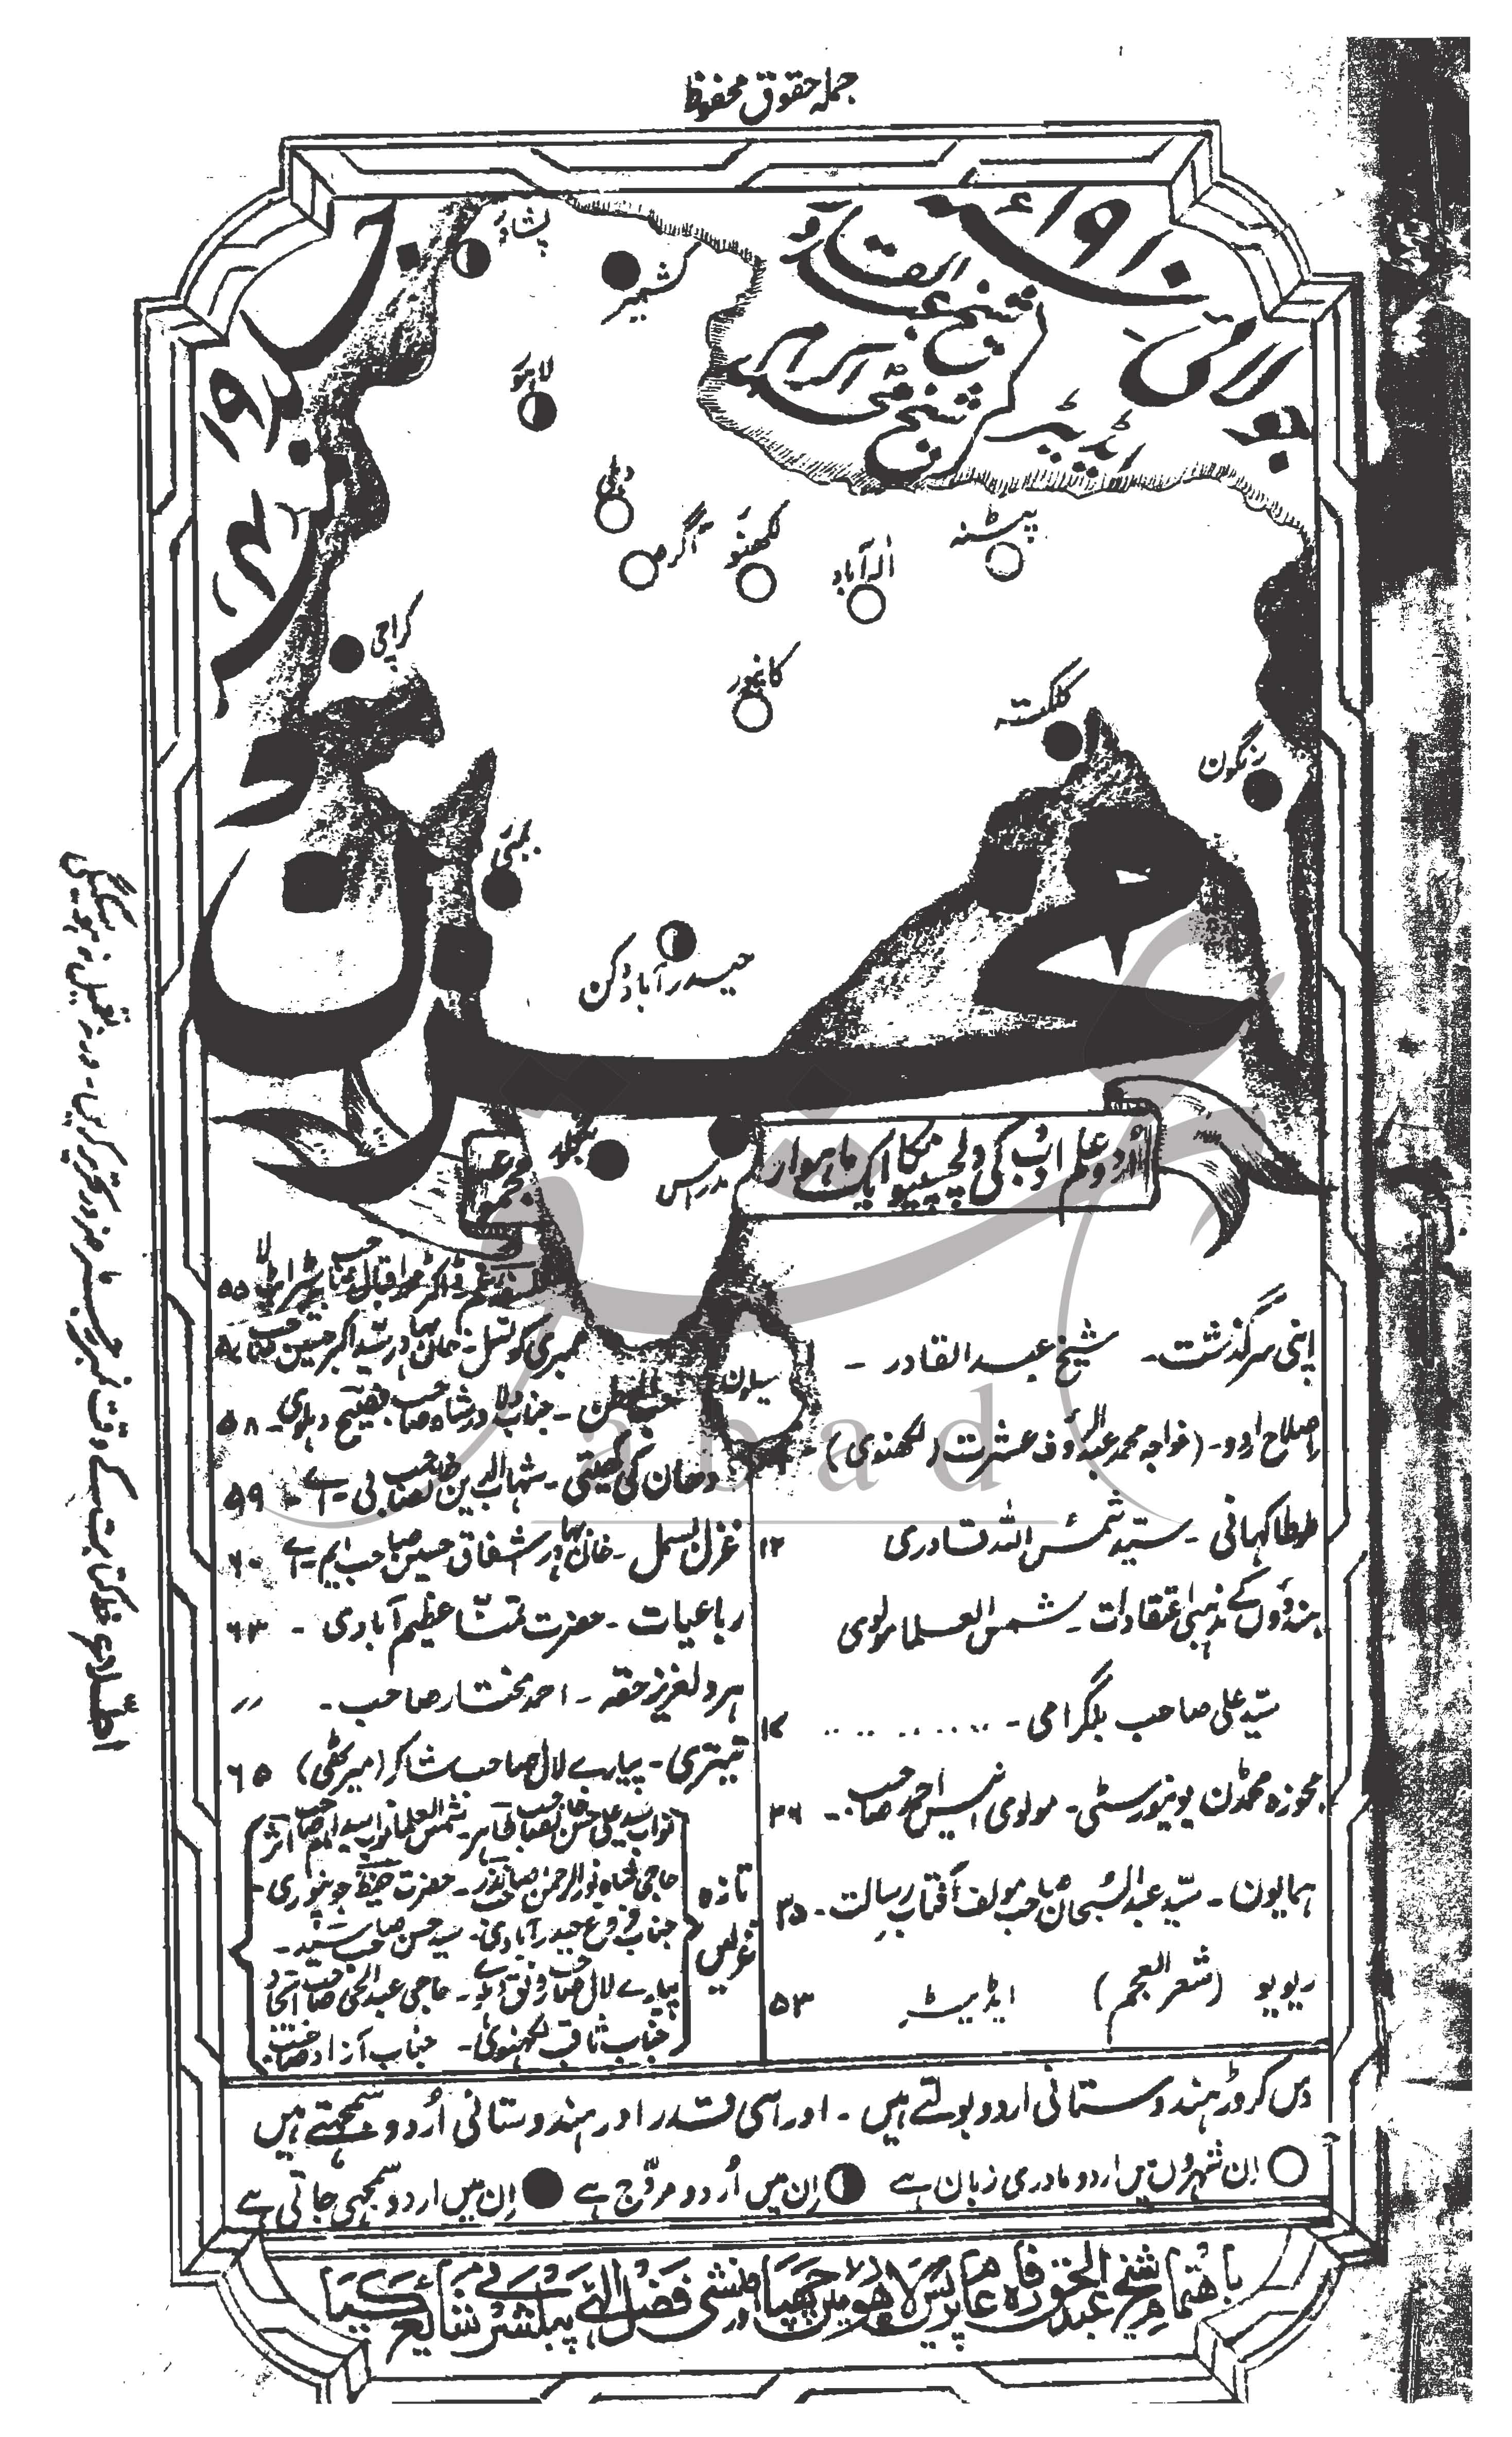 جملہ حقوق محفوظ
جولائی ۱۹۱۰ء
شیخ عبدالقادر
شیخ محمد اکرام
ایڈیٹر
جلد ۱۹
نمبر ۴
پشاور
کشمیر
لاہور
دہلی
آگرہ
لکھنؤ
الہ آباد
پٹنہ
کراچی
کانپور
کلکتہ
رنگون
بمبئی
حیدرآباد دکن
مخزن
بنگلور
مدراس
اردو علم ادب کی دلچسپیوں کا ایک ماہوار
مجموعہ
سیلون
اپنی سرگذشت۔ شیخ عبدالقادر ۔
اصلاح اردو۔ (خواجہ محمد عبدالرؤف عشرت لکھنوی)
طوطا کہانی ۔ سید شمس اللہ قادری ۱۲
ہندوؤں کے مذہبی اعتقادات۔ شمس العلما مولوی
سید علی صاحب بلگرامی ۔ ۱۷
مجوزہ محمڈن یونیورسٹی۔ مولوی انیس احمد صاحب ۔ ۲۶
ہمایوں ۔ سید عبدالسبحان صاحب مولف آفتاب رسالت۔ ۳۵
ریویو (شعر العجم) ایڈیٹر ۵۳
ڈاکٹر محمد اقبال صاحب بیرسٹرایٹ لا ۵۵
ممبری کونسل۔ خان بہادر سید اکبر حسین صاحب ۵۷
حب الوطن ۔ جناب لادر شاہ صاحب فصیح دہلوی ۔ ۵۸
دھان کی کھیتی ۔ شہاب الدین خانصاحب بی ۔ اے ۔ ۵۹
غزل بسمل ۔ خان بہادر اشفاق حسین صاحب ایم ۔ اے ۶۰
رباعیات ۔ حضرت تمنا عظیم آبادی ۔ ۶۳
ہر دلعزیز حقہ ۔ احمد مختار صاحب ۔ ״
تیتری ۔ پیارے لال صاحب شاکر (میرٹھی) ۶۵
تازہ غزلیں
نواب سید علی حسن خانصاحب طاہر۔ شمس العلما نواب سید امداد امام صاحب اثر
حاجی شاہ نورالرحمن صاحب نور۔ حضرت حفیظ جونپوری۔
جناب فروغ حیدرآبادی۔ سید حسن صاحب سید۔
پیارے لال صاحب رونق دہلوی ۔ حاجی عبدالحئی صاحب اتحاد
جناب ثاقب لکھنوی ۔ جناب آزاد صاحب
دس کروڑ ہندوستانی اردو بولتے ہیں ۔ اور اسی قدر اور ہندوستانی اُردو سمجھتے ہیں
اِن شہروں میں اردو مادری زبان ہے اِن میں اُردو مروّج ہے اِن میں اردو سمجھی جاتی ہے
باہتمام شیخ عبدالحق رفاہ عام پریس لاہور میں چھپا اور منشی فضل الٰہی پبلشر نے شائع کیا
abad